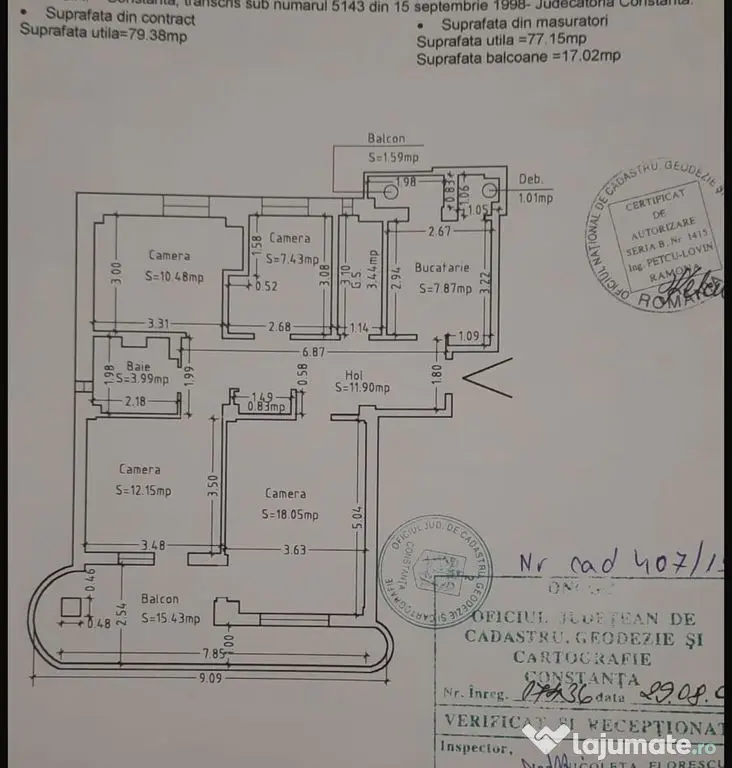 Constanta, transcris sub numarul 5143 din 15 septembrie 1998- Judecatoria Constanta.
• Suprafata din contract
Suprafata utila=79.38mp
• Suprafata din masuratori
Suprafata utila =77.15mp
Suprafata balcoane =17.02mp
Balcon
S=1.59mp
1.98
0.83
1.06
1.05
Deb.
1.01mp
Camera
S=10.48mp
3.00
3.31
Camera
S=7.43mp
1.58
3.08
0.52
2.68
3.10
G.S.
3.44mp
1.14
2.67
2.94
Bucatarie
S=7.87mp
3.22
1.09
6.87
Baie
S=3.99mp
1.98
1.99
2.18
1.49
0.83mp
0.58
Hol
S=11.90mp
1.80
Camera
S=12.15mp
3.50
3.48
Camera
S=18.05mp
5.04
3.63
Balcon
S=15.43mp
0.46
0.48
2.54
1.00
7.85
9.09
OFICIUL NATIONAL DE CADASTRU, GEODEZIE ȘI
CERTIFICAT
DE
AUTORIZARE
SERIA B, Nr 1415
Ing. PETCU-LOVIN
RAMONA
ROMANIA
OFICIUL JUD. DE CADASTRU GEODEZIE SI CARTOGRAFIE
CONSTANTA
Nr cad 407/1
OFICIUL JUDEȚEAN DE
CADASTRU, GEODEZIE ȘI
CARTOGRAFIE
CONSTANȚA
Nr. Înreg. data 29.08.
VERIFICAT ȘI RECEPȚIONAT
Inspector,
NICOLETA FLORESCU
lajumate.ro